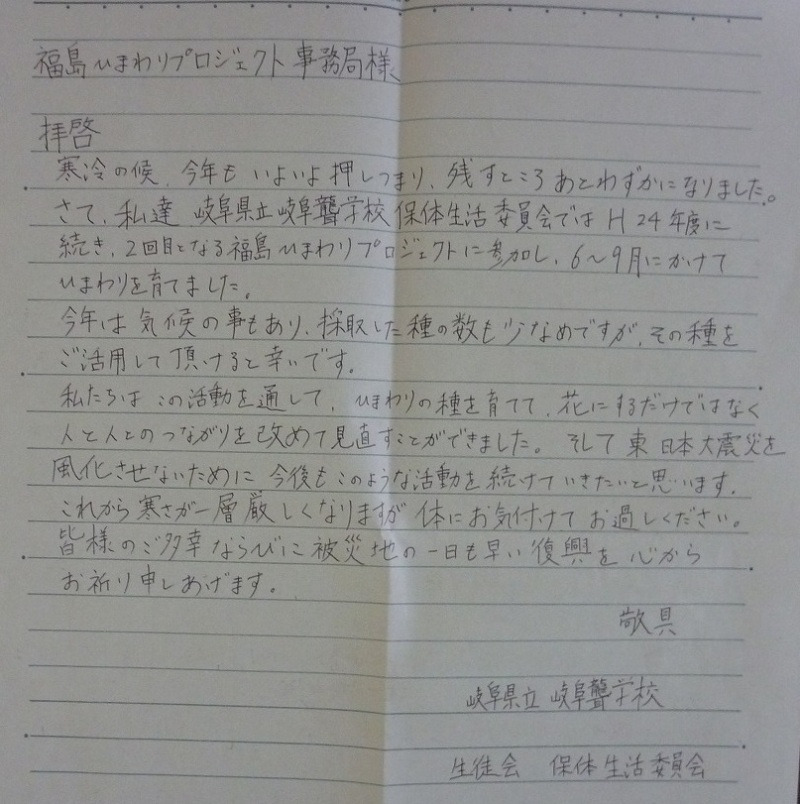 福島ひまわりプロジェクト事務局様
拝啓
寒冷の候、今年もいよいよ押しつまり、残すところあとわずかになりました。
さて、私達 岐阜県立岐阜聾学校保体生活委員会ではH24年度に
続き、2回目となる福島ひまわりプロジェクトに参加し、6〜9月にかけて
ひまわりを育てました。
今年は気候の事もあり、採取した種の数も少なめですが、その種を
ご活用して頂けると幸いです。
私たちはこの活動を通して、ひまわりの種を育てて、花にするだけではなく
人と人とのつながりを改めて見直すことができました。そして東日本大震災を
風化させないために今後もこのような活動を続けていきたいと思います。
これから寒さが一層厳しくなりますが体にお気付けてお過しください。
皆様のご多幸ならびに被災地の一日も早い復興を心から
お祈り申しあげます。
敬具
岐阜県立岐阜聾学校
生徒会 保体生活委員会